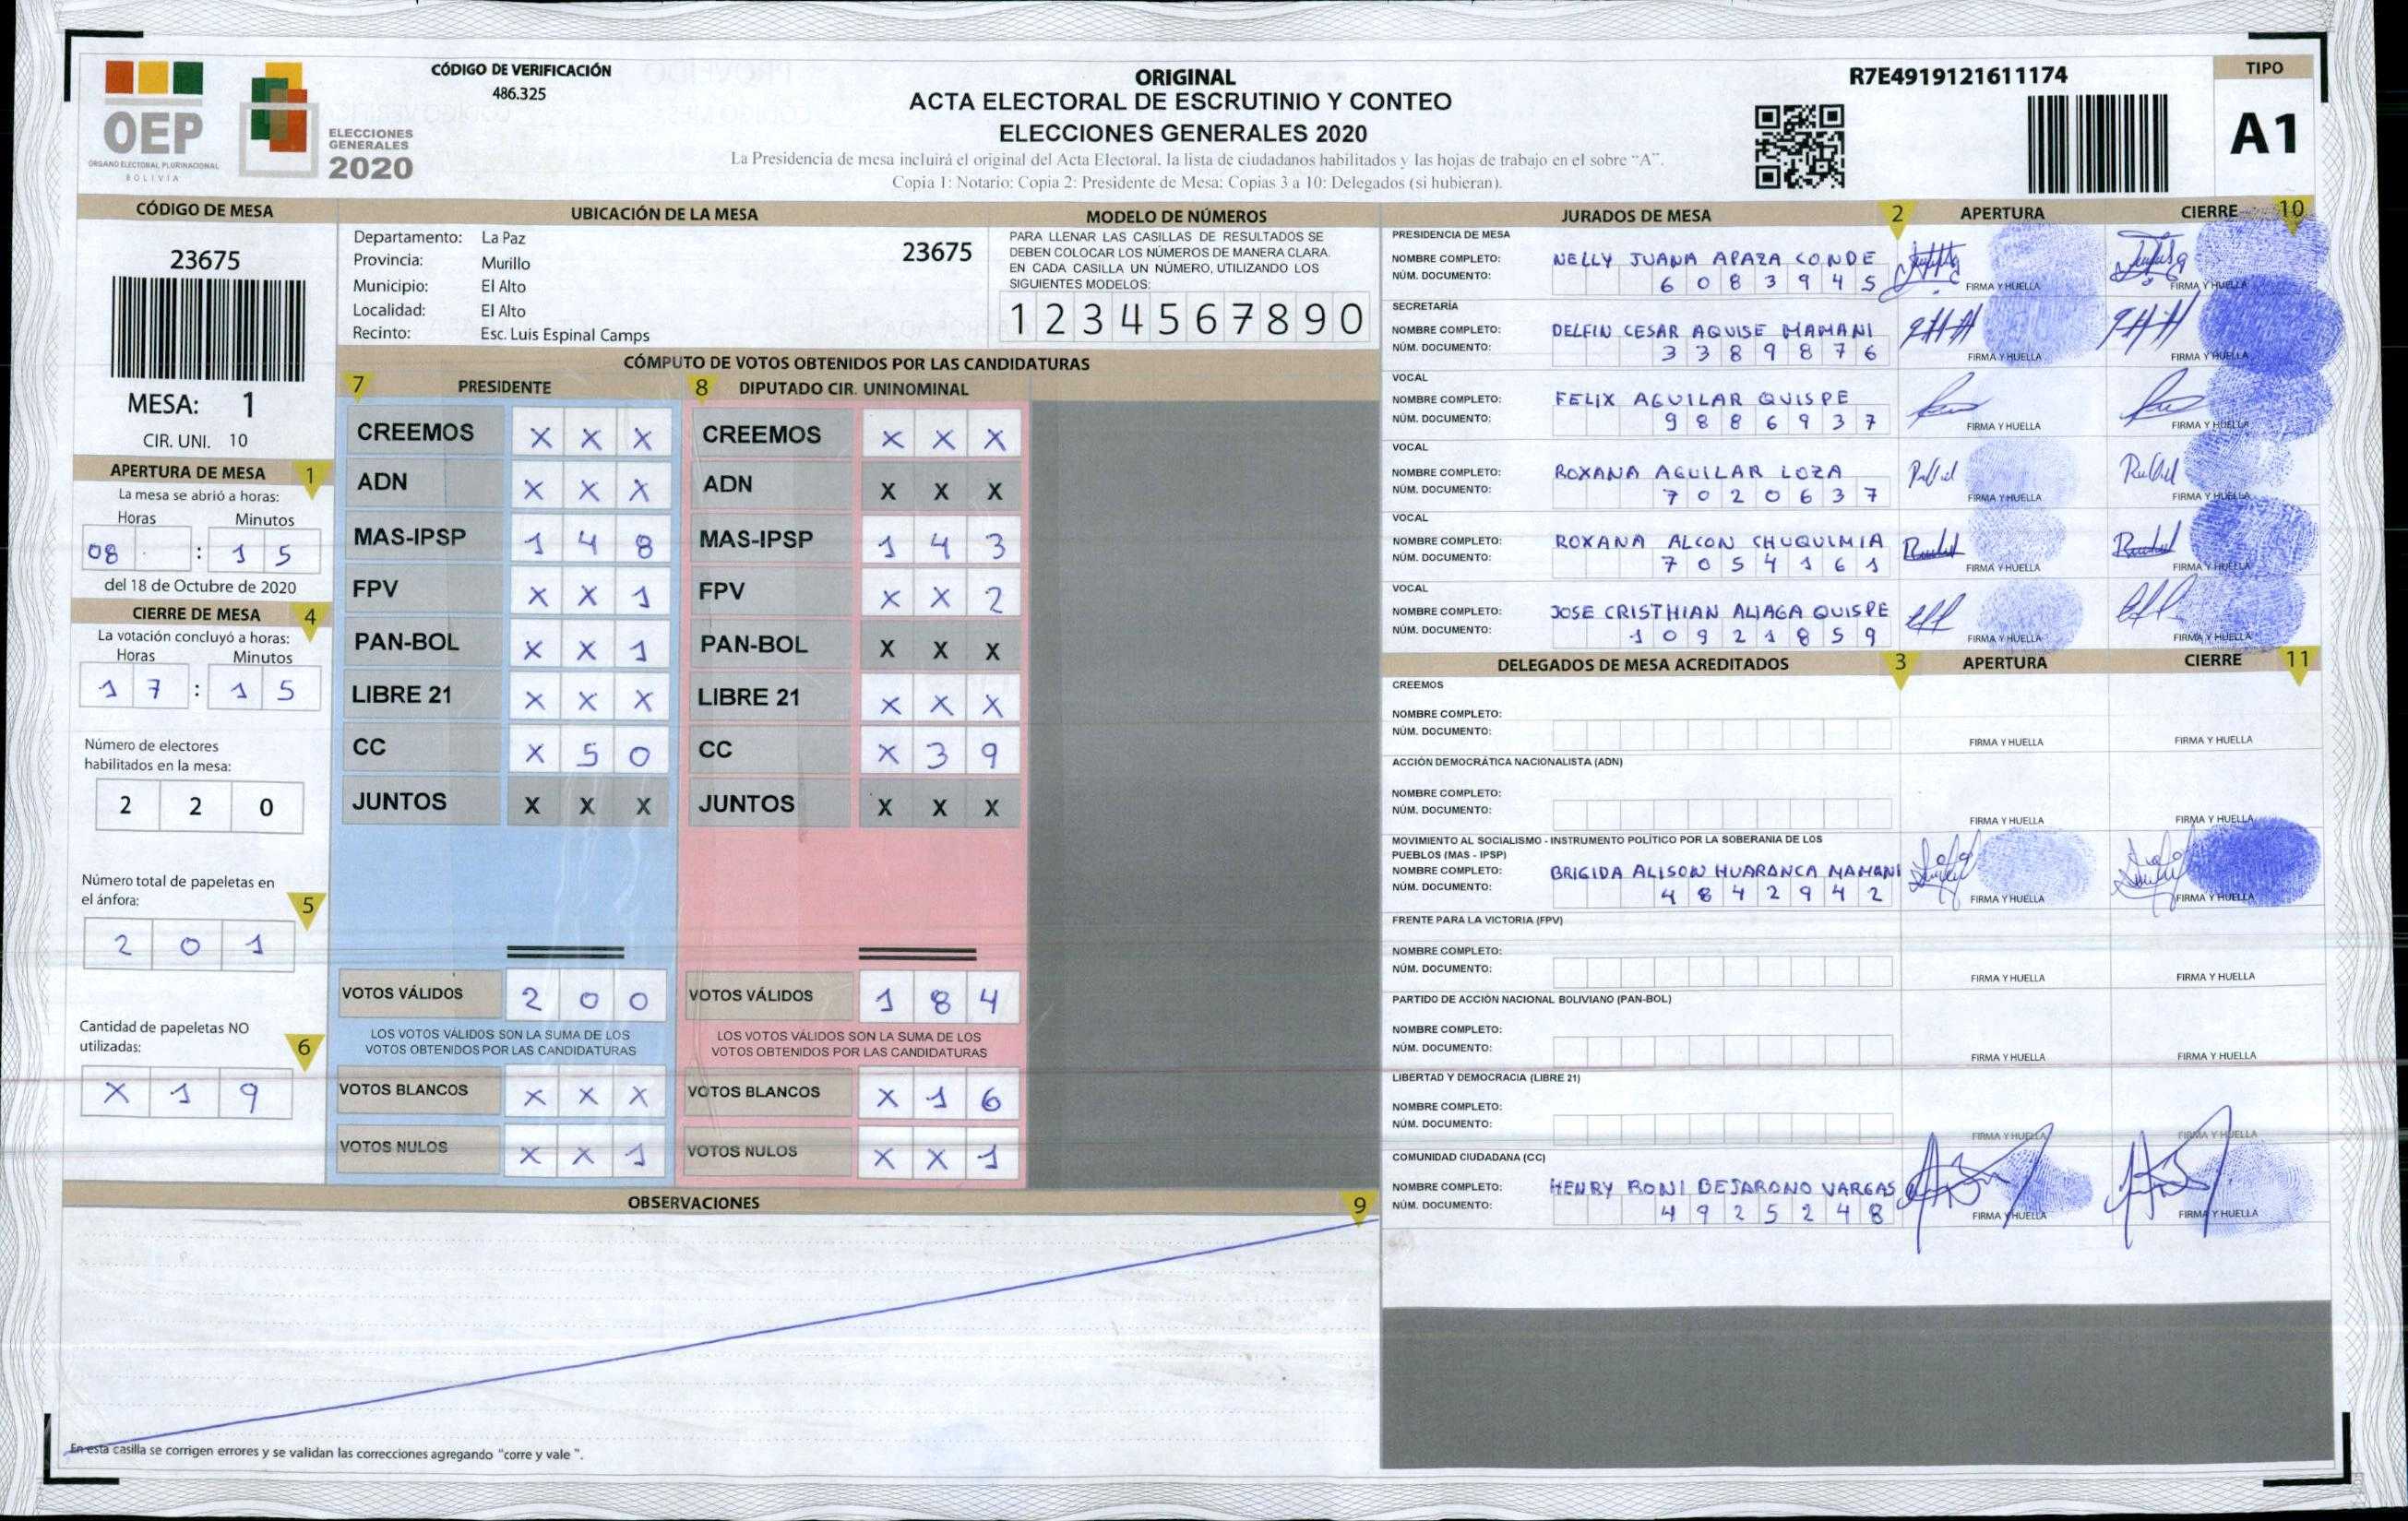 OEP
ÓRGANO ELECTORAL PLURINACIONAL
BOLIVIA
ELECCIONES
GENERALES
2020
CÓDIGO DE VERIFICACIÓN
486.325
ORIGINAL
ACTA ELECTORAL DE ESCRUTINIO Y CONTEO
ELECCIONES GENERALES 2020
La Presidencia de mesa incluirá el original del Acta Electoral, la lista de ciudadanos habilitados y las hojas de trabajo en el sobre "A".
Copia 1: Notario: Copia 2: Presidente de Mesa: Copias 3 a 10: Delegados (si hubieran).
R7E4919121611174
TIPO
A1
CÓDIGO DE MESA
23675
MESA: 1
CIR. UNI. 10
APERTURA DE MESA 1
La mesa se abrió a horas:
Horas Minutos
08 : 1 5
del 18 de Octubre de 2020
CIERRE DE MESA 4
La votación concluyó a horas:
Horas Minutos
1 7 : 1 5
Número de electores
habilitados en la mesa:
2 2 0
Número total de papeletas en
el ánfora: 5
2 0 1
Cantidad de papeletas NO
utilizadas: 6
X 1 9
UBICACIÓN DE LA MESA
Departamento: La Paz
Provincia: Murillo
Municipio: El Alto
Localidad: El Alto
Recinto: Esc. Luis Espinal Camps
23675
MODELO DE NÚMEROS
PARA LLENAR LAS CASILLAS DE RESULTADOS SE
DEBEN COLOCAR LOS NÚMEROS DE MANERA CLARA.
EN CADA CASILLA UN NÚMERO, UTILIZANDO LOS
SIGUIENTES MODELOS:
1 2 3 4 5 6 7 8 9 0
CÓMPUTO DE VOTOS OBTENIDOS POR LAS CANDIDATURAS
7 PRESIDENTE
CREEMOS X X X
ADN X X X
MAS-IPSP 1 4 8
FPV X X 1
PAN-BOL X X 1
LIBRE 21 X X X
CC X 5 0
JUNTOS X X X
VOTOS VÁLIDOS 2 0 0
LOS VOTOS VÁLIDOS SON LA SUMA DE LOS
VOTOS OBTENIDOS POR LAS CANDIDATURAS
VOTOS BLANCOS X X X
VOTOS NULOS X X 1
8 DIPUTADO CIR. UNINOMINAL
CREEMOS X X X
ADN X X X
MAS-IPSP 1 4 3
FPV X X 2
PAN-BOL X X X
LIBRE 21 X X X
CC X 3 9
JUNTOS X X X
VOTOS VÁLIDOS 1 8 4
LOS VOTOS VÁLIDOS SON LA SUMA DE LOS
VOTOS OBTENIDOS POR LAS CANDIDATURAS
VOTOS BLANCOS X 1 6
VOTOS NULOS X X 1
OBSERVACIONES 9
En esta casilla se corrigen errores y se validan las correcciones agregando "corre y vale ".
JURADOS DE MESA 2 APERTURA CIERRE 10
PRESIDENCIA DE MESA
NOMBRE COMPLETO: NELLY JUANA APAZA CONDE
NÚM. DOCUMENTO: 6 0 8 3 9 4 5
FIRMA Y HUELLA FIRMA Y HUELLA
SECRETARÍA
NOMBRE COMPLETO: DELFIN CESAR AQUISE MAMANI
NÚM. DOCUMENTO: 3 3 8 9 8 7 6
FIRMA Y HUELLA FIRMA Y HUELLA
VOCAL
NOMBRE COMPLETO: FELIX AGUILAR QUISPE
NÚM. DOCUMENTO: 9 8 8 6 9 3 7
FIRMA Y HUELLA FIRMA Y HUELLA
VOCAL
NOMBRE COMPLETO: ROXANA AGUILAR LOZA
NÚM. DOCUMENTO: 7 0 2 0 6 3 7
FIRMA Y HUELLA FIRMA Y HUELLA
VOCAL
NOMBRE COMPLETO: ROXANA ALCON CHUQUIMIA
NÚM. DOCUMENTO: 7 0 5 4 1 6 1
FIRMA Y HUELLA FIRMA Y HUELLA
VOCAL
NOMBRE COMPLETO: JOSE CRISTHIAN ALIAGA QUISPE
NÚM. DOCUMENTO: 1 0 9 2 1 8 5 9
FIRMA Y HUELLA FIRMA Y HUELLA
DELEGADOS DE MESA ACREDITADOS 3 APERTURA CIERRE 11
CREEMOS
NOMBRE COMPLETO:
NÚM. DOCUMENTO:
FIRMA Y HUELLA FIRMA Y HUELLA
ACCIÓN DEMOCRÁTICA NACIONALISTA (ADN)
NOMBRE COMPLETO:
NÚM. DOCUMENTO:
FIRMA Y HUELLA FIRMA Y HUELLA
MOVIMIENTO AL SOCIALISMO - INSTRUMENTO POLÍTICO POR LA SOBERANIA DE LOS
PUEBLOS (MAS - IPSP)
NOMBRE COMPLETO: BRIGIDA ALISON HUARANCA MAMANI
NÚM. DOCUMENTO: 4 8 4 2 9 4 2
FIRMA Y HUELLA FIRMA Y HUELLA
FRENTE PARA LA VICTORIA (FPV)
NOMBRE COMPLETO:
NÚM. DOCUMENTO:
FIRMA Y HUELLA FIRMA Y HUELLA
PARTIDO DE ACCIÓN NACIONAL BOLIVIANO (PAN-BOL)
NOMBRE COMPLETO:
NÚM. DOCUMENTO:
FIRMA Y HUELLA FIRMA Y HUELLA
LIBERTAD Y DEMOCRACIA (LIBRE 21)
NOMBRE COMPLETO:
NÚM. DOCUMENTO:
FIRMA Y HUELLA FIRMA Y HUELLA
COMUNIDAD CIUDADANA (CC)
NOMBRE COMPLETO: HENRY RONI BEJARANO VARGAS
NÚM. DOCUMENTO: 4 9 2 5 2 4 8
FIRMA Y HUELLA FIRMA Y HUELLA